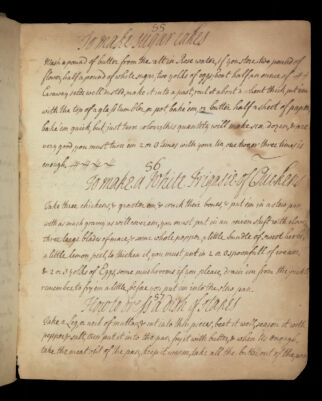 55
To make sugar cakes
Wash a pound of butter from the salt in Rose water, if you stove two pound of
flower, half a pound of white sugar, two yolks of eggs beat half an ounce of
Caraway seeds, well mixed, make it into a past, roul it about thick, put em
with the top of a glass tumbler, or pot bake em, butter half a sheet of paper,
bake em quick, but just turn colour, this quantity will make six dozen, & are
very good, you must turn em 2 or 3 times with your tin one turns three times is
enough.
56
To make a White Frigasie of Chickens
Take three chickens, & quarter em, & crack their bones, & put em in a stew pan
with as much gravey as will cover em, you must put in an onion stuft with cloves,
three large blades of mace, & some whole pepper, a little bundle of sweet herbs,
a little lemon peel, to thicken it, you must put in 2 or 3 spoonfull of cream,
& 2 or 3 yolks of Eggs, some mushrooms if you please, drain em from the
remember to fry em a little, before you put em into the stew pan.
57
How to do a dish of stakes
Take a Leg or neck of mutton, & cut into thin pieces, beat it well season it with
pepper & salt, then put it into the pan, fry it with butter, & when tis enough,
take the meat out of the pan, keep it warm, take all the butter out of the pan